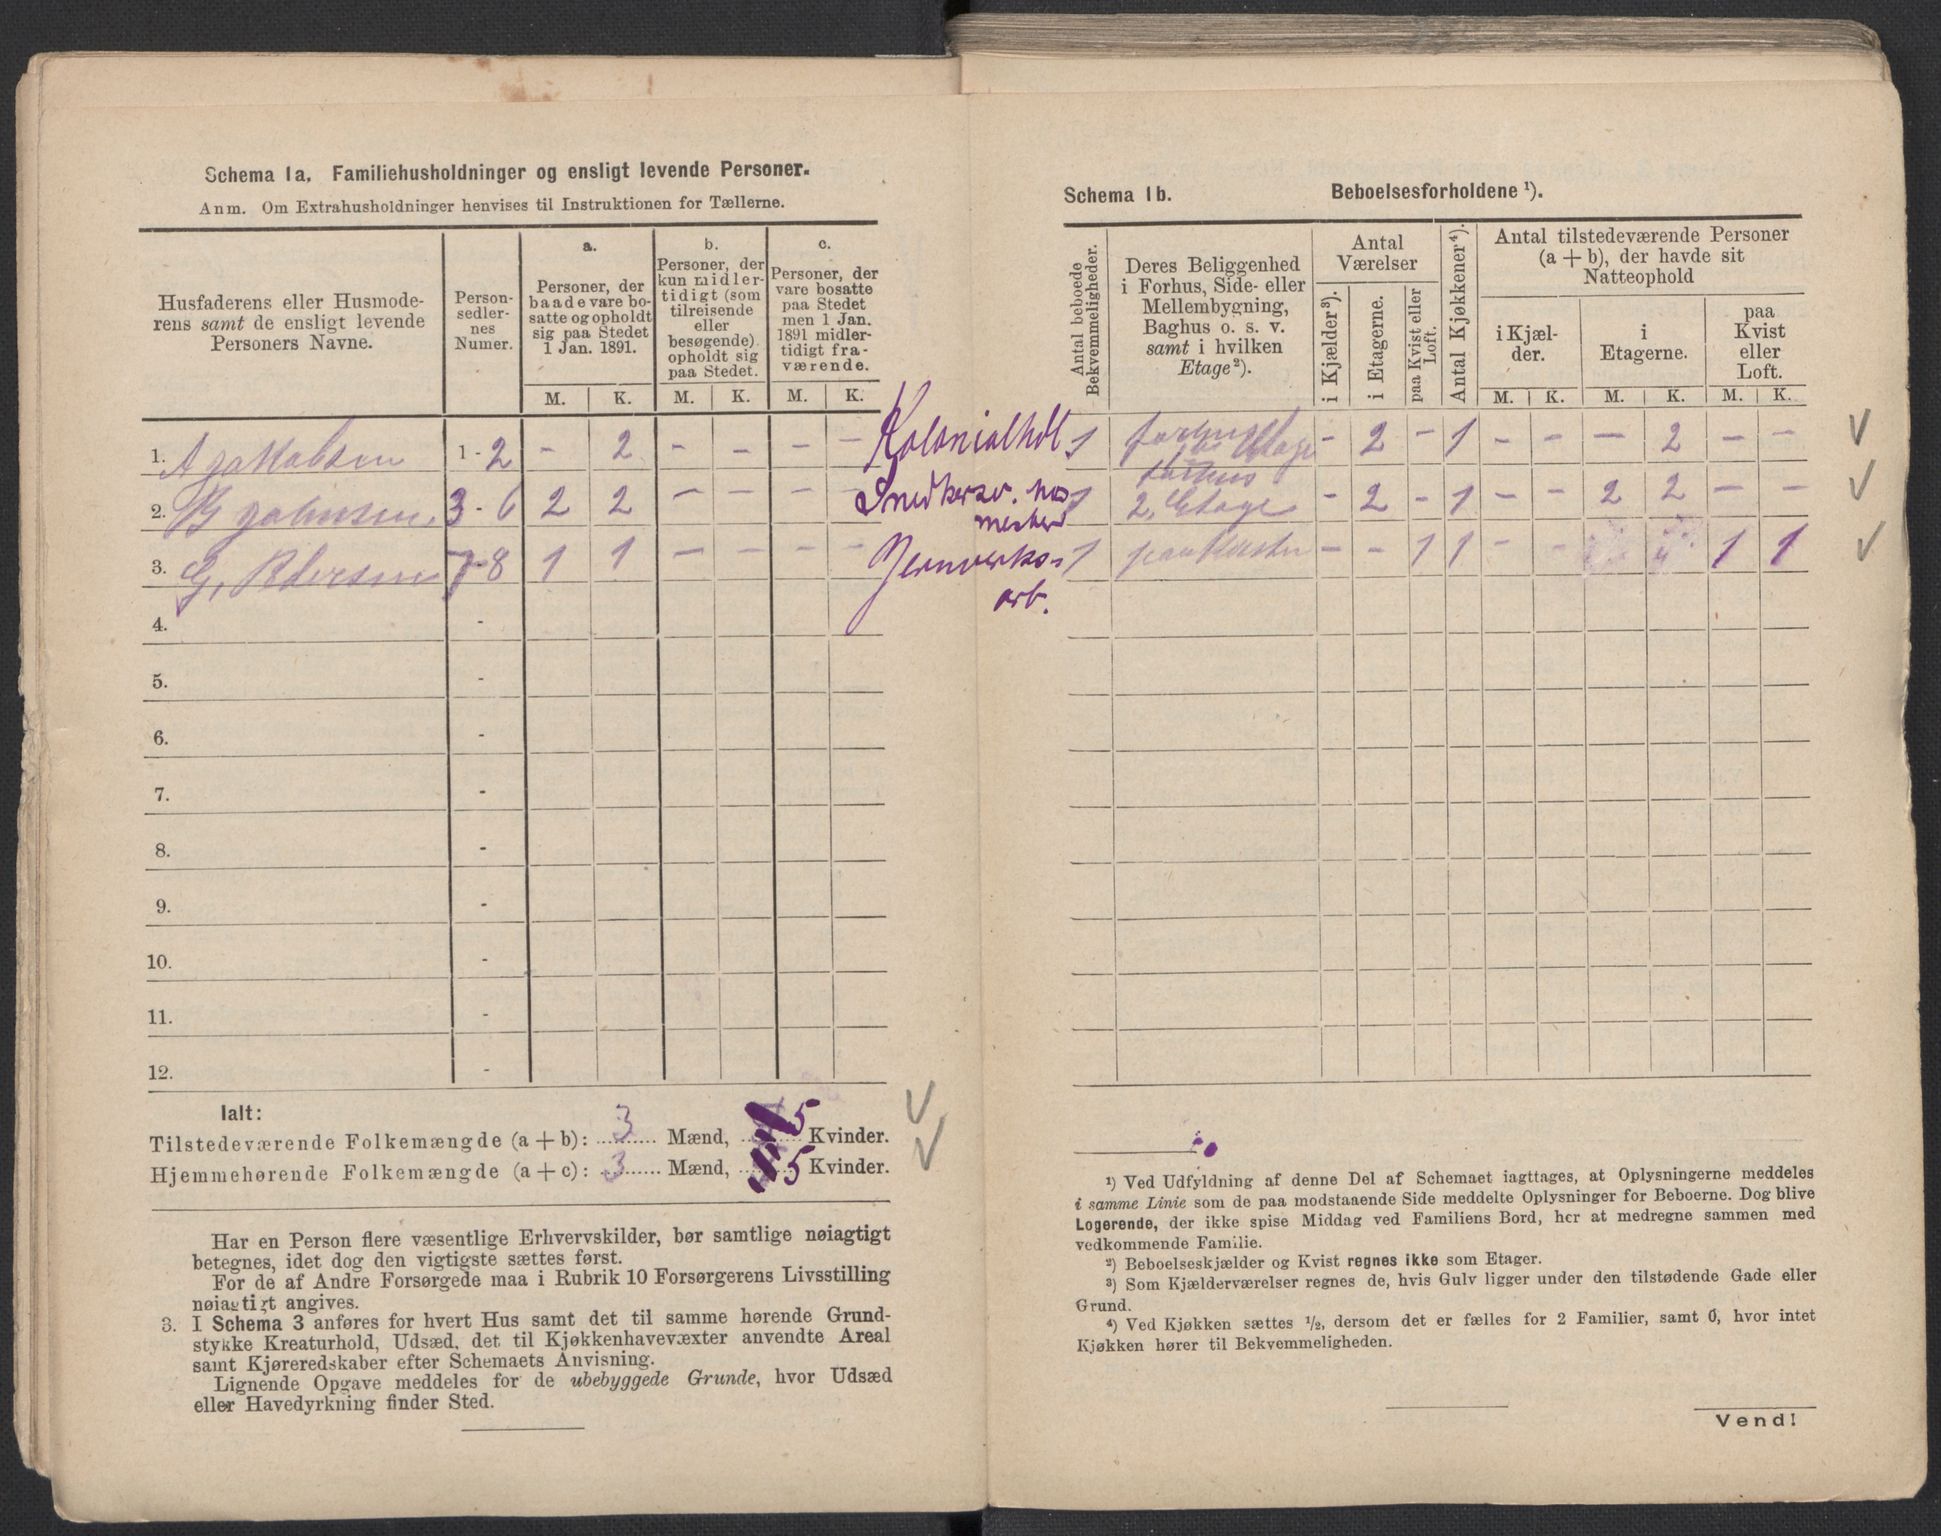 Schema 1a. Familiehusholdninger og ensligt levende Personer.
Anm. Om Extrahusholdninger henvises til Instruktionen for Tællerne.
Husfaderens eller Husmode-
rens samt de ensligt levende
Personers Navne.
Person-
sedler-
nes
Numer.
a.
Personer, der
baade vare bo-
satte og opholdt
sig paa Stedet
1 Jan. 1891.
b.
Personer, der
kun midler-
tidigt (som
tilreisende
eller
besøgende)
opholdt sig
paa Stedet.
c.
Personer, der
vare bosatte
paa Stedet
men 1 Jan.
1891 midler-
tidigt fra-
værende.
M. K. M. K. M. K.
1. A Jakobsen 1 - 2 - 2 - - - - Kolonialhdl
2. B Johnsen 3 - 6 2 2 - - - - Snedkersv. hos
mester
3. G, Pedersen 7-8 1 1 - - - - Jernverks-
arb.
4. -
5. -
6. -
7. -
8. -
9. -
10. -
11. -
12. -
Ialt:
Tilstedeværende Folkemængde (a + b): 3 Mænd, 5 Kvinder.
Hjemmehørende Folkemængde (a + c): 3 Mænd, 5 Kvinder.
Har en Person flere væsentlige Erhvervskilder, bør samtlige nøiagtigt
betegnes, idet dog den vigtigste sættes først.
For de af Andre Forsørgede maa i Rubrik 10 Forsørgerens Livsstilling
nøiagtigt angives.
3. I Schema 3 anføres for hvert Hus samt det til samme hørende Grund-
stykke Kreaturhold, Udsæd, det til Kjøkkenhavevæxter anvendte Areal
samt Kjøreredskaber efter Schemaets Anvisning.
Lignende Opgave meddeles for de ubebyggede Grunde, hvor Udsæd
eller Havedyrkning finder Sted.
Schema 1b. Beboelsesforholdene ¹).
Antal beboede
Bekvemmeligheder.
Deres Beliggenhed
i Forhus, Side- eller
Mellembygning,
Baghus o. s. v.
samt i hvilken
Etage²).
Antal
Værelser
i Kjælder³).
i Etagerne.
paa Kvist eller
Loft.
Antal Kjøkkener⁴).
Antal tilstedeværende Personer
(a + b), der havde sit
Natteophold
i Kjæl-
der.
i
Etagerne.
paa
Kvist
eller
Loft.
M. K. M. K. M. K.
1 forhus Etage - 2 - 1 - - - 2 - -
1 forhus
2. Etage - 2 - 1 - - 2 2 - -
1 paa Kvisten - - 1 1 - - 1 1
¹) Ved Udfyldning af denne Del af Schemaet iagttages, at Oplysningerne meddeles
i samme Linie som de paa modstaaende Side meddelte Oplysninger for Beboerne. Dog blive
Logerende, der ikke spise Middag ved Familiens Bord, her at medregne sammen med
vedkommende Familie.
²) Beboelseskjælder og Kvist regnes ikke som Etager.
³) Som Kjælderværelser regnes de, hvis Gulv ligger under den tilstødende Gade eller
Grund.
⁴) Ved Kjøkken sættes ½, dersom det er fælles for 2 Familier, samt 0, hvor intet
Kjøkken hører til Bekvemmeligheden.
Vend!